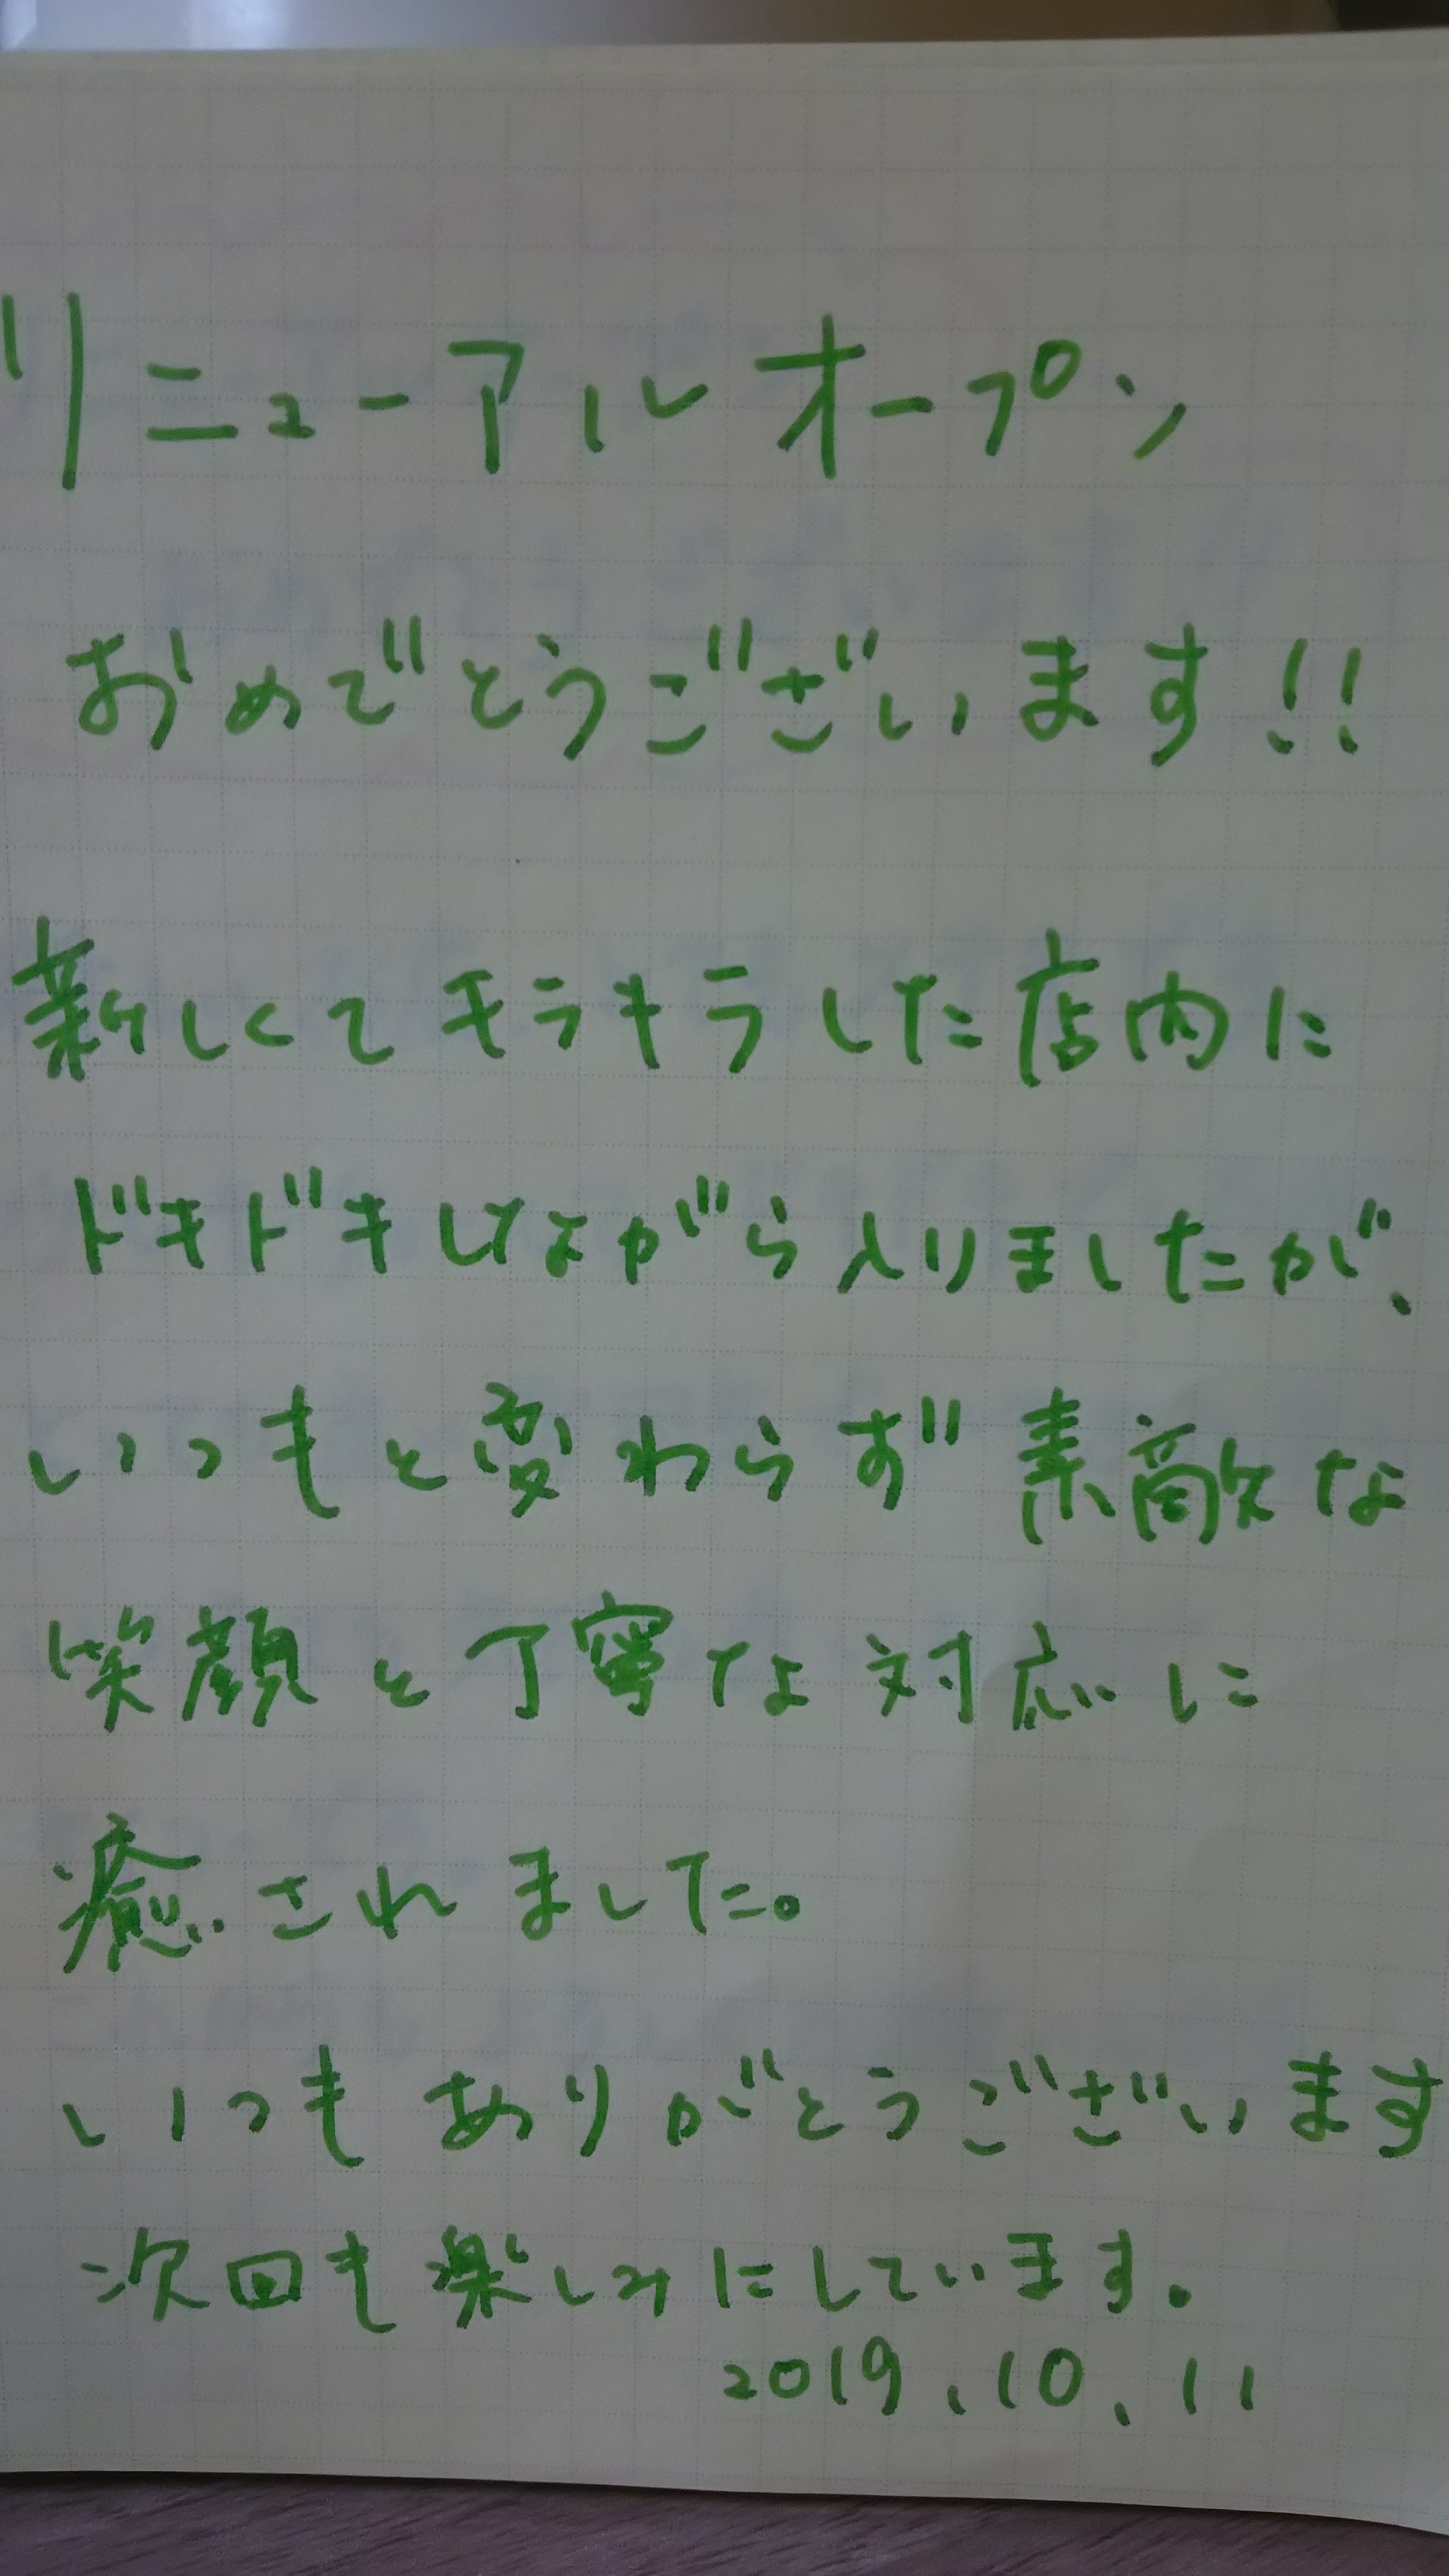 リニューアルオープン
おめでとうございます!!
新しくてキラキラした店内に
ドキドキしながら入りましたが、
いつもと変わらず素敵な
笑顔と丁寧な対応に
癒されました。
いつもありがとうございます
次回も楽しみにしています。
2019.10.11